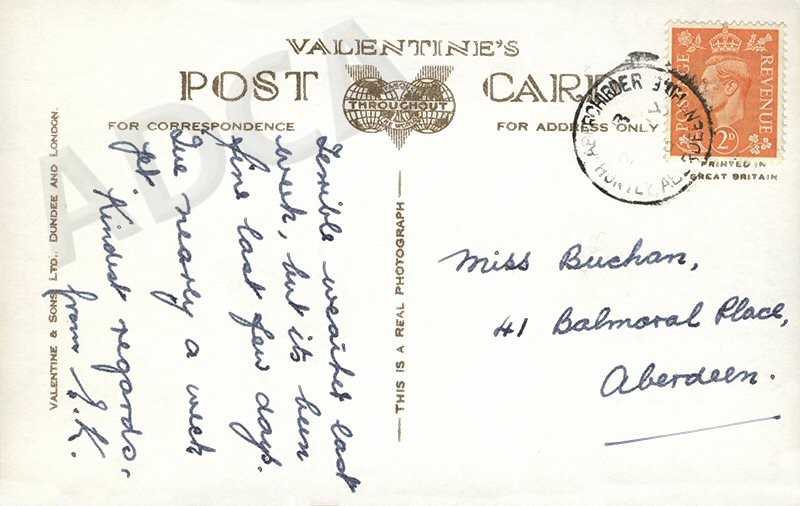 VALENTINE'S
POST CARD
THROUGHOUT
FOR CORRESPONDENCE
FOR ADDRESS ONLY
POSTAGE REVENUE
2D
PRINTED IN
GREAT BRITAIN
ADCA
VALENTINE & SONS LTD. DUNDEE AND LONDON.
THIS IS A REAL PHOTOGRAPH
Terrible weather last
week, but its been
fine last few days.
Ive nearly a week
yet. Kindest regards,
from J.K.
Miss Buchan,
41 Balmoral Place,
Aberdeen.